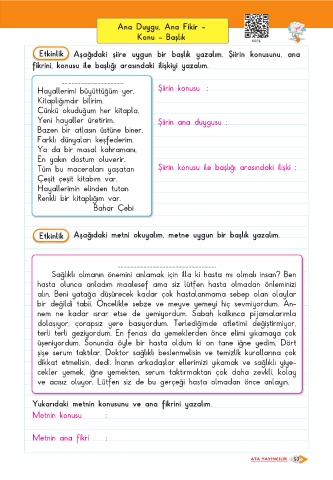 Ana Duygu, Ana Fikir -
Konu - Başlık
Etkinlik Aşağıdaki şiire uygun bir başlık yazalım. Şiirin konusunu, ana
fikrini, konusu ile başlığı arasındaki ilişkiyi yazalım.
Hayallerimi büyüttüğüm yer,
Kitaplığımdır bilirim.
Çünkü okuduğum her kitapla,
Yeni hayaller üretirim.
Bazen bir atlasın üstüne biner,
Farklı dünyaları keşfederim.
Ya da bir masal kahramanı,
En yakın dostum oluverir.
Tüm bu maceraları yaşatan
Çeşit çeşit kitabım var.
Hayallerimin elinden tutan
Renkli bir kitaplığım var.
Bahar Çebi
Şiirin konusu :
Şiirin ana duygusu :
Şiirin konusu ile başlığı arasındaki ilişki :
Etkinlik Aşağıdaki metni okuyalım, metne uygun bir başlık yazalım.
Sağlıklı olmanın önemini anlamak için illa ki hasta mı olmalı insan? Ben
hasta olunca anladım maalesef ama siz lütfen hasta olmadan önleminizi
alın. Beni yatağa düşürecek kadar çok hastalanmama sebep olan olaylar
bir değildi tabii. Öncelikle sebze ve meyve yemeyi hiç sevmiyordum. An-
nem ne kadar ısrar etse de yemiyordum. Sabah kalkınca pijamalarımla
dolaşıyor, çorapsız yere basıyordum. Terlediğimde atletimi değiştirmiyor,
terli terli geziyordum. En fenası da yemeklerden önce elimi yıkamaya çok
üşeniyordum. Sonunda öyle bir hasta oldum ki on tane iğne yedim. Dört
şişe serum taktılar. Doktor sağlıklı beslenmelisin ve temizlik kurallarına çok
dikkat etmelisin, dedi. İnanın arkadaşlar ellerimizi yıkamak ve sağlıklı yiye-
cekler yemek, iğne yemekten, serum taktırmaktan çok daha zevkli, kolay
ve acısız oluyor. Lütfen siz de bu gerçeği hasta olmadan önce anlayın.
Yukarıdaki metnin konusunu ve ana fikrini yazalım.
Metnin konusu :
Metnin ana fikri :
ATA YAYINCILIK 53